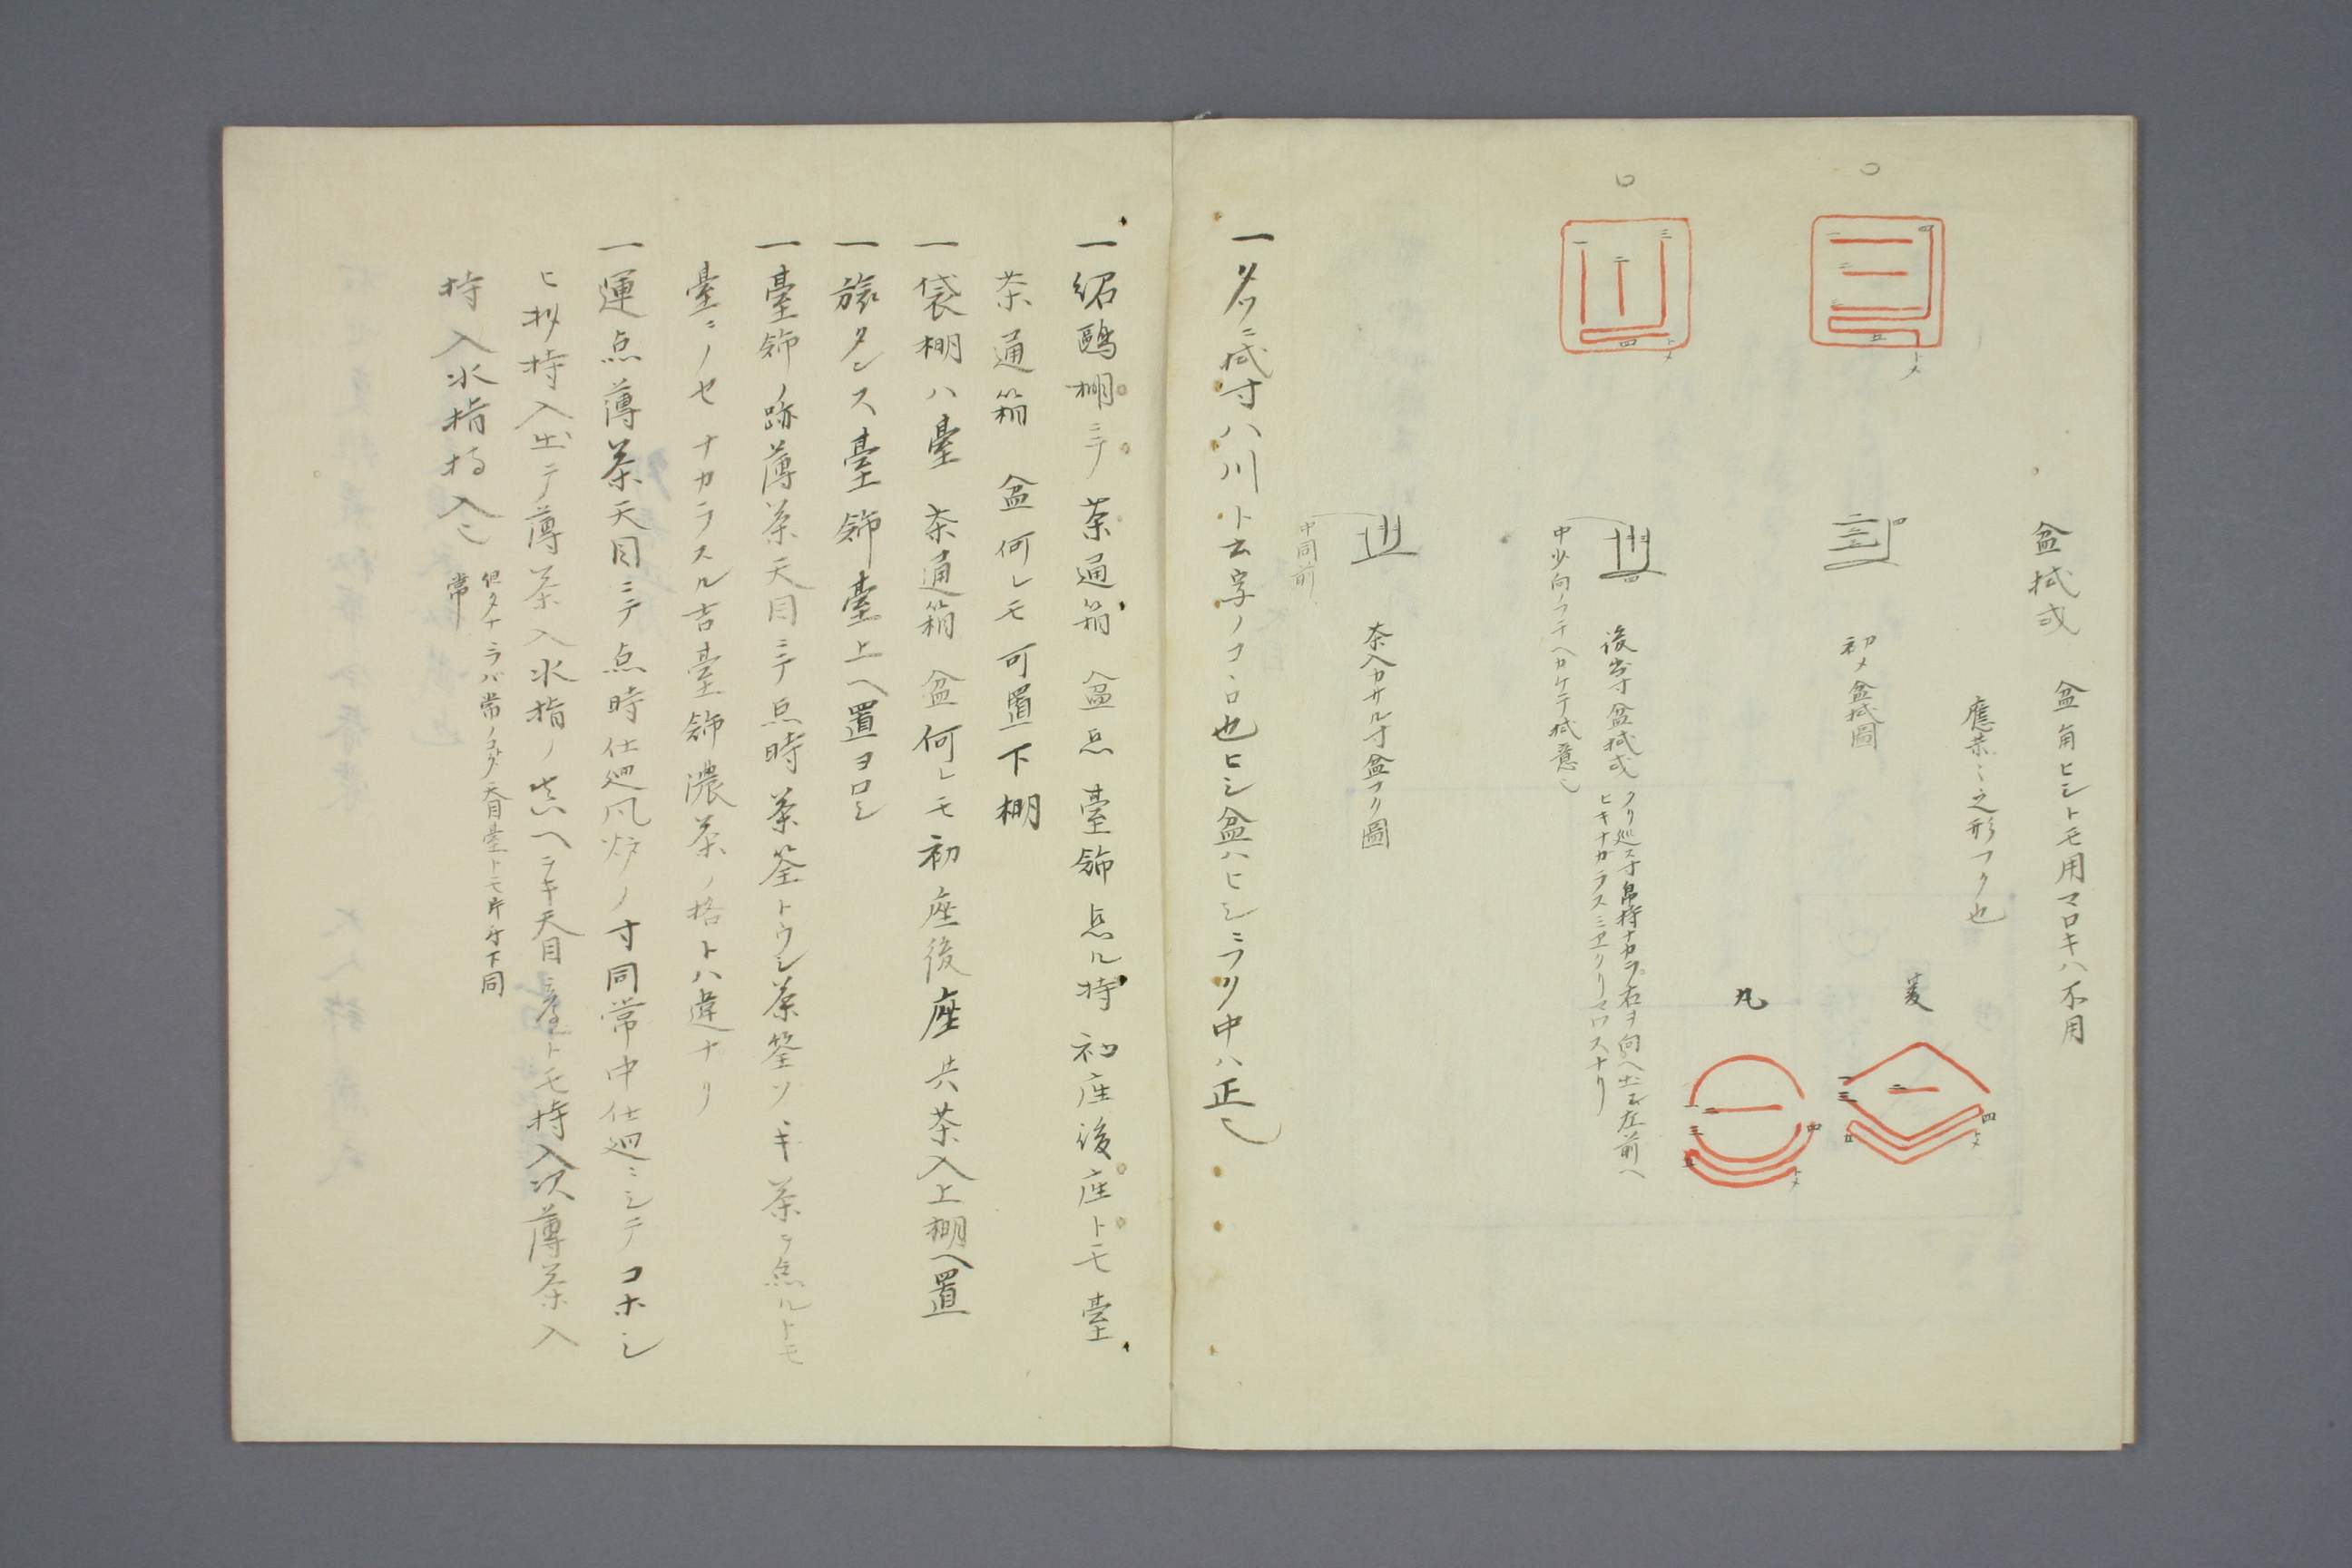 盆拭或　盆角ヒシトモ用マロキハ不用
應恭〻之形フク也
初メ盆拭圖
菱
丸
後寄盆拭或
フリ廻ス寸帛持ナカラ右ヲ向ヘ出シ左前ヘ
ヒキナカラスミヱクリマロスナリ
中少向フチヘカケテ拭意也
茶入カサル寸盆フク圖
中同前
一タツニ拭寸ハ川ト云字ノコヽロ也ヒシ盆ハヒシニフク中ハ正也
一紹鷗棚ニテ茶通箱　盆点　臺飾点ル時初座後座トモ臺
茶通箱　盆何レモ可置下棚
一袋棚ハ臺　茶通箱　盆何レモ初座後座共茶入上棚ヘ置
一旅タンス臺飾臺上ヘ置ヨロシ
一臺飾ノ跡薄茶天目ニテ点時茶筌トウシ茶筌ソヽキ茶ヲ点ルトモ
臺ニノセナカラスル吉臺飾濃茶ノ格トハ違ナリ
一運点薄茶天目ニテ点時仕廻風炉ノ寸同常中仕廻ニシテコホシ
ヒ抄持入出テ薄茶入水指ノ真ヘヲキ天目ニ臺トモ持入次薄茶入
持入水指持入也
但タナラバ常ノコトク天目臺トモ片付下同
常
一
二
三
四
五
トメ
一
二
三
四
トメ